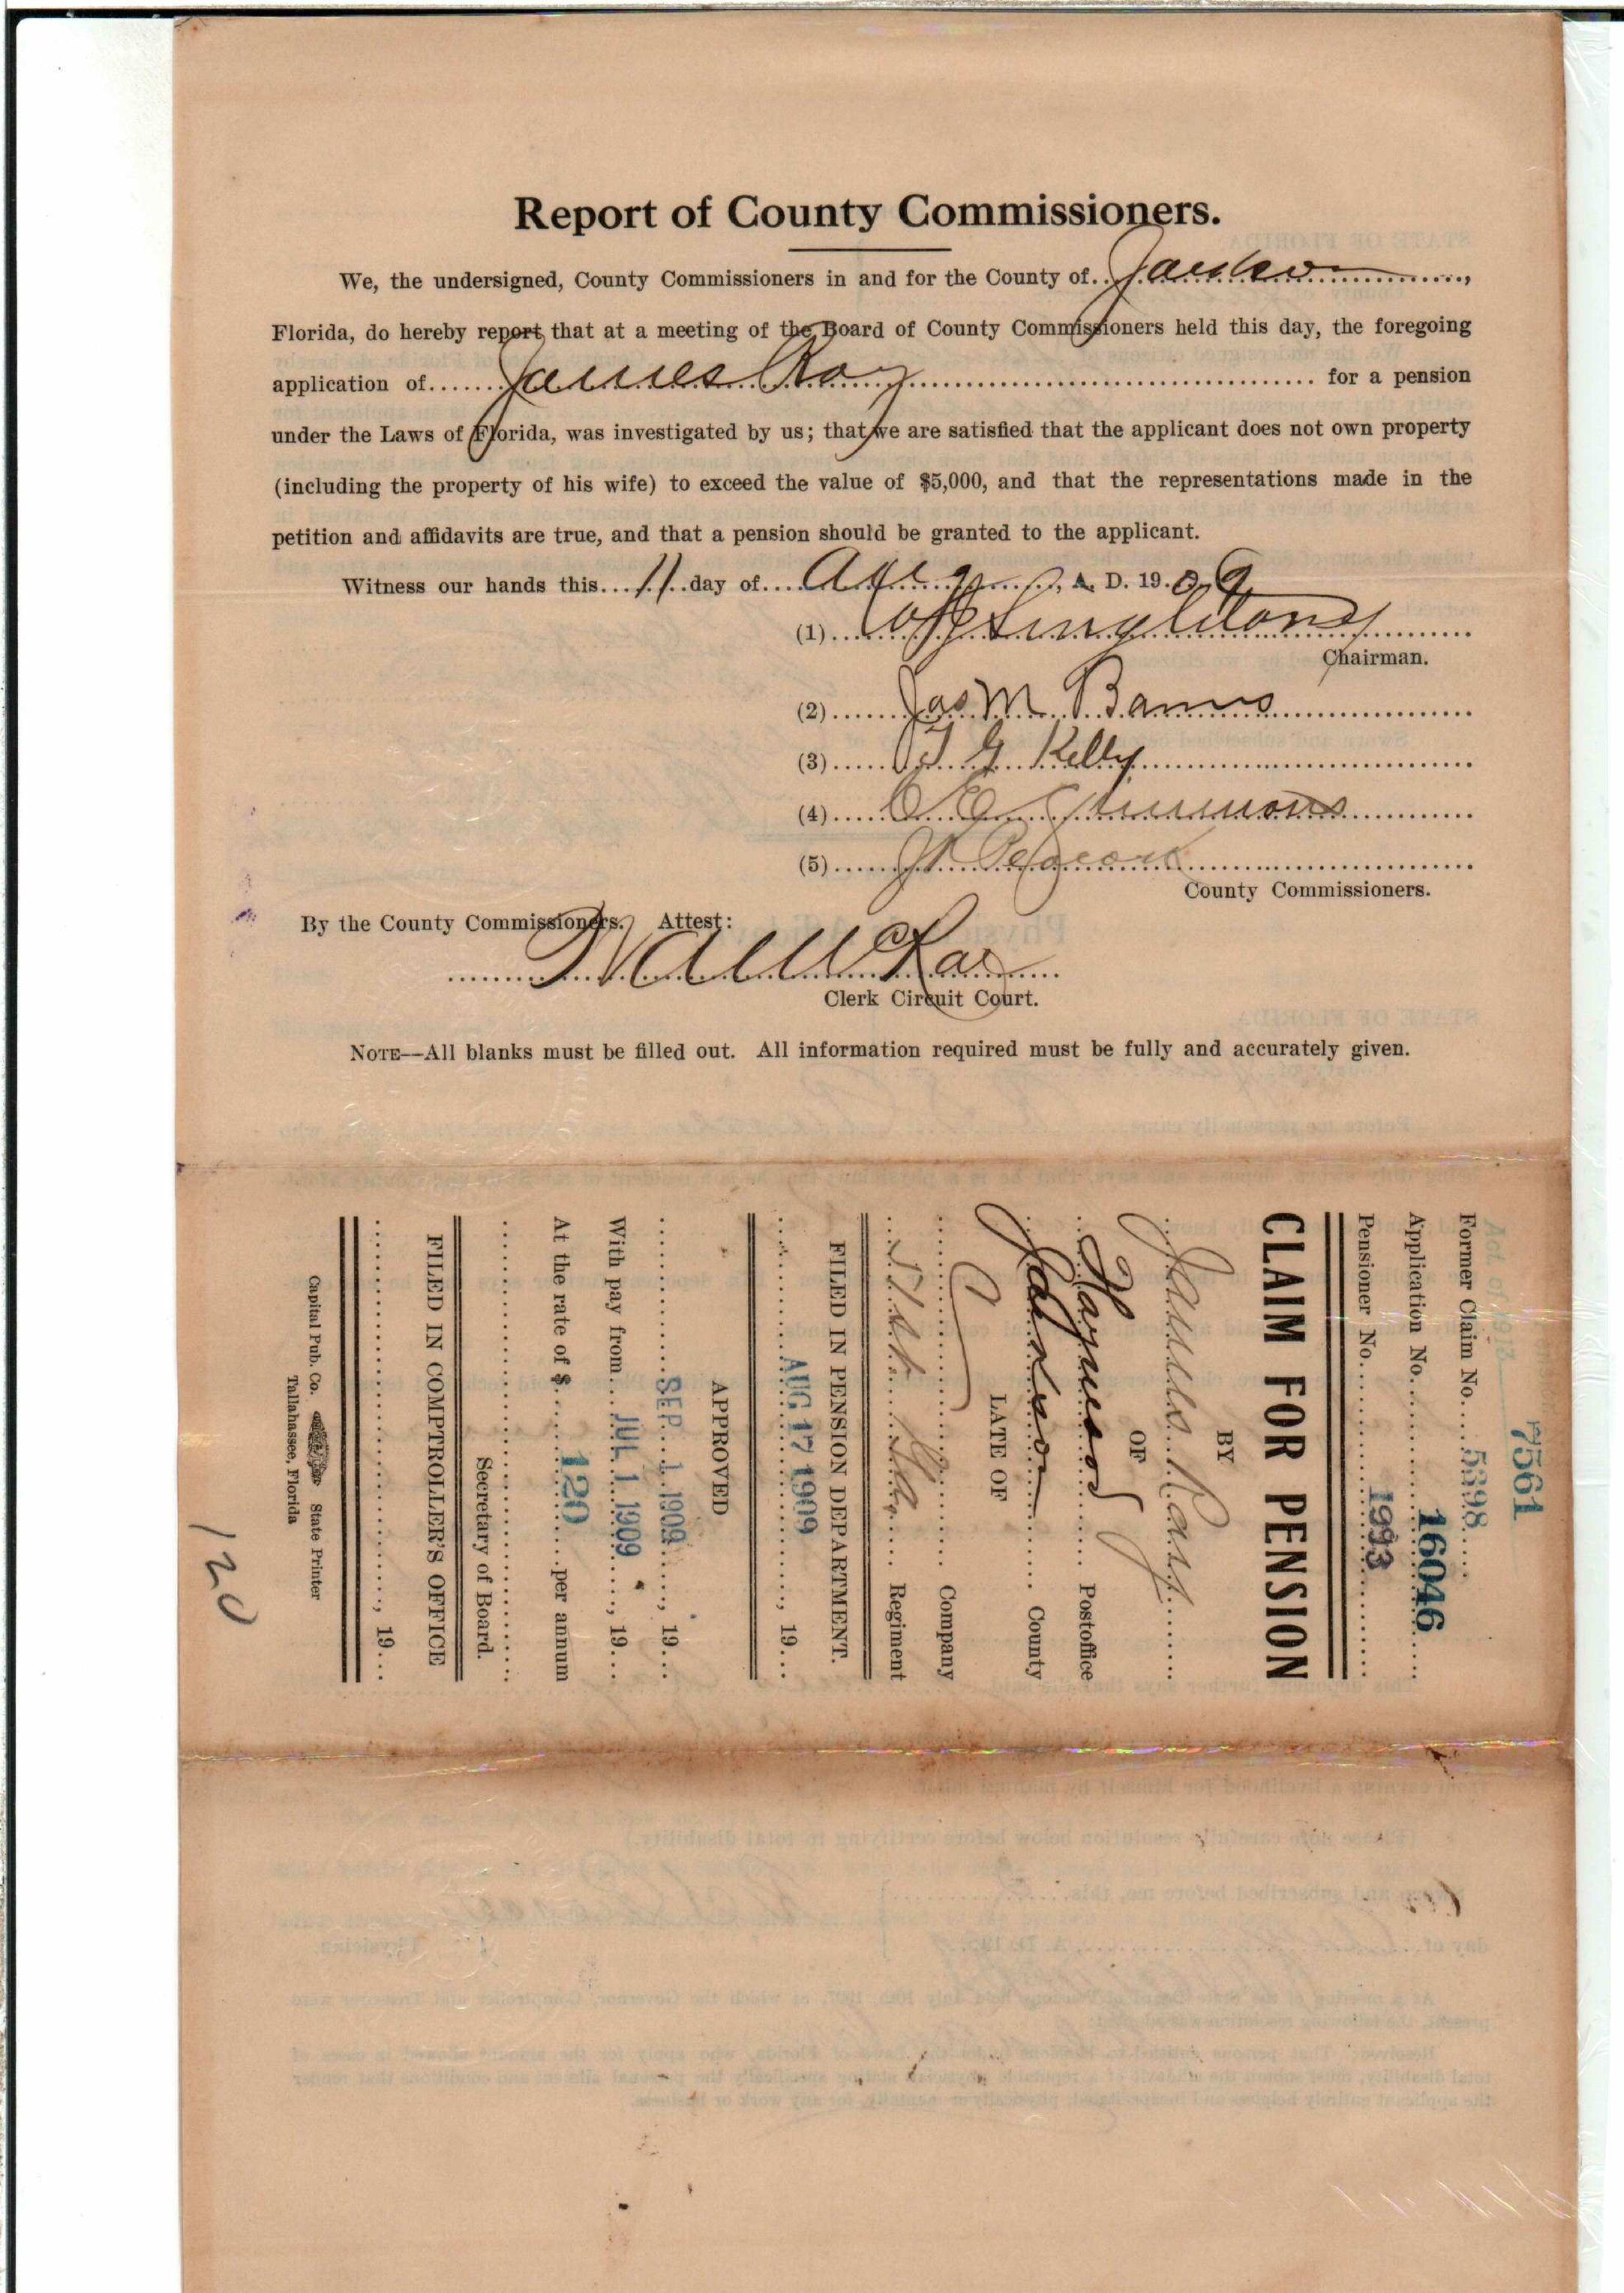 Report of County Commissioners.
We, the undersigned, County Commissioners in and for the County of Jackson,
Florida, do hereby report that at a meeting of the Board of County Commissioners held this day, the foregoing
application of James Ray for a pension
under the Laws of Florida, was investigated by us; that we are satisfied that the applicant does not own property
(including the property of his wife) to exceed the value of $5,000, and that the representations made in the
petition and affidavits are true, and that a pension should be granted to the applicant.
Witness our hands this 11 day of Aug, A. D. 1909
(1) Singletary
Chairman.
(2) Jas M Barnes
(3) T G Kelly
(4) C E Simmons
(5) J R Peacock
County Commissioners.
By the County Commissioners. Attest:
Clerk Circuit Court.
NOTE—All blanks must be filled out. All information required must be fully and accurately given.
7561
Act of 1913
Former Claim No. 5398
Application No. 16046
Pensioner No. 1993
CLAIM FOR PENSION
BY
James Ray
OF
Haynes Postoffice
Jackson County
LATE OF
C Company
51st Ga. Regiment
FILED IN PENSION DEPARTMENT.
AUG 17 1909, 19
APPROVED
SEP 1 1909, 19
With pay from JUL 1 1909, 19
At the rate of $ 120 per annum
Secretary of Board.
FILED IN COMPTROLLER'S OFFICE
, 19
Capital Pub. Co. State Printer
Tallahassee, Florida
120